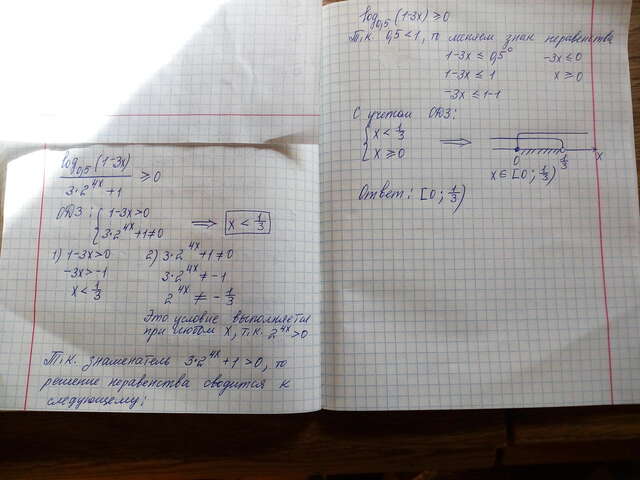 log₀,₅(1-3x)
3·2^4x + 1
≥ 0
ОДЗ: { 1-3x>0
3·2^4x + 1 ≠ 0
⟹ x < 1/3
1) 1-3x>0
-3x>-1
x < 1/3
2) 3·2^4x + 1 ≠ 0
3·2^4x ≠ -1
2^4x ≠ - 1/3
Это условие выполняется
при любом x, т.к. 2^4x > 0
Т.к. знаменатель 3·2^4x + 1 > 0, то
решение неравенства сводится к
следующему:
log₀,₅(1-3x) ≥ 0
Т.к. 0,5 < 1, то меняем знак неравенства
1-3x ≤ 0,5⁰
1-3x ≤ 1
-3x ≤ 1-1
-3x ≤ 0
x ≥ 0
С учетом ОДЗ:
{ x < 1/3
x ≥ 0
⟹
0 1/3 x
x ∈ [0; 1/3)
Ответ: [0; 1/3)